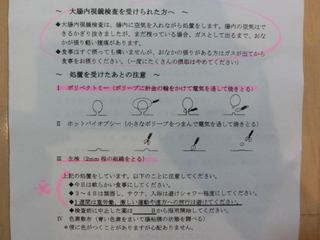 ～ 大腸内視鏡検査を受けられた方へ ～
◆大腸内視鏡検査は、腸内に空気を入れながら処置をします。腸内の空気はで
きるかぎり抜きましたが、まだ残っている場合、ガスとして出るまで、おな
かが張り軽い腹痛があります。
◆食事はすぐ摂っても構いませんが、おなかの張りがある方はガスが出てから
食事をお摂りください。（一度にたくさんの摂取はやめてください）
～ 処置を受けたあとの注意 ～
Ⅰ ポリペクトミー（ポリープに針金の輪をかけて電気を通して焼きとる）
Ⅱ ホットバイオプシー（小さなポリープをつまんで電気を通して焼きとる）
Ⅲ 生検（2mm程の組織をとる）
上記の処置をしています。以下のことに注意してください。
◆今日は軟らかい食事にしてください。
◆3～4日は禁酒し、サウナ、入浴は避けシャワー程度にしてください。
◆1週間は重労働、激しい運動や遠方への旅行は避けてください。
◆検査前に中止した薬は 日から服用開始してください。
Ⅳ 色素散布（青い色素をまいて腸粘膜の状態を調べる）
＊便に色がつくことがありますが心配ありません。